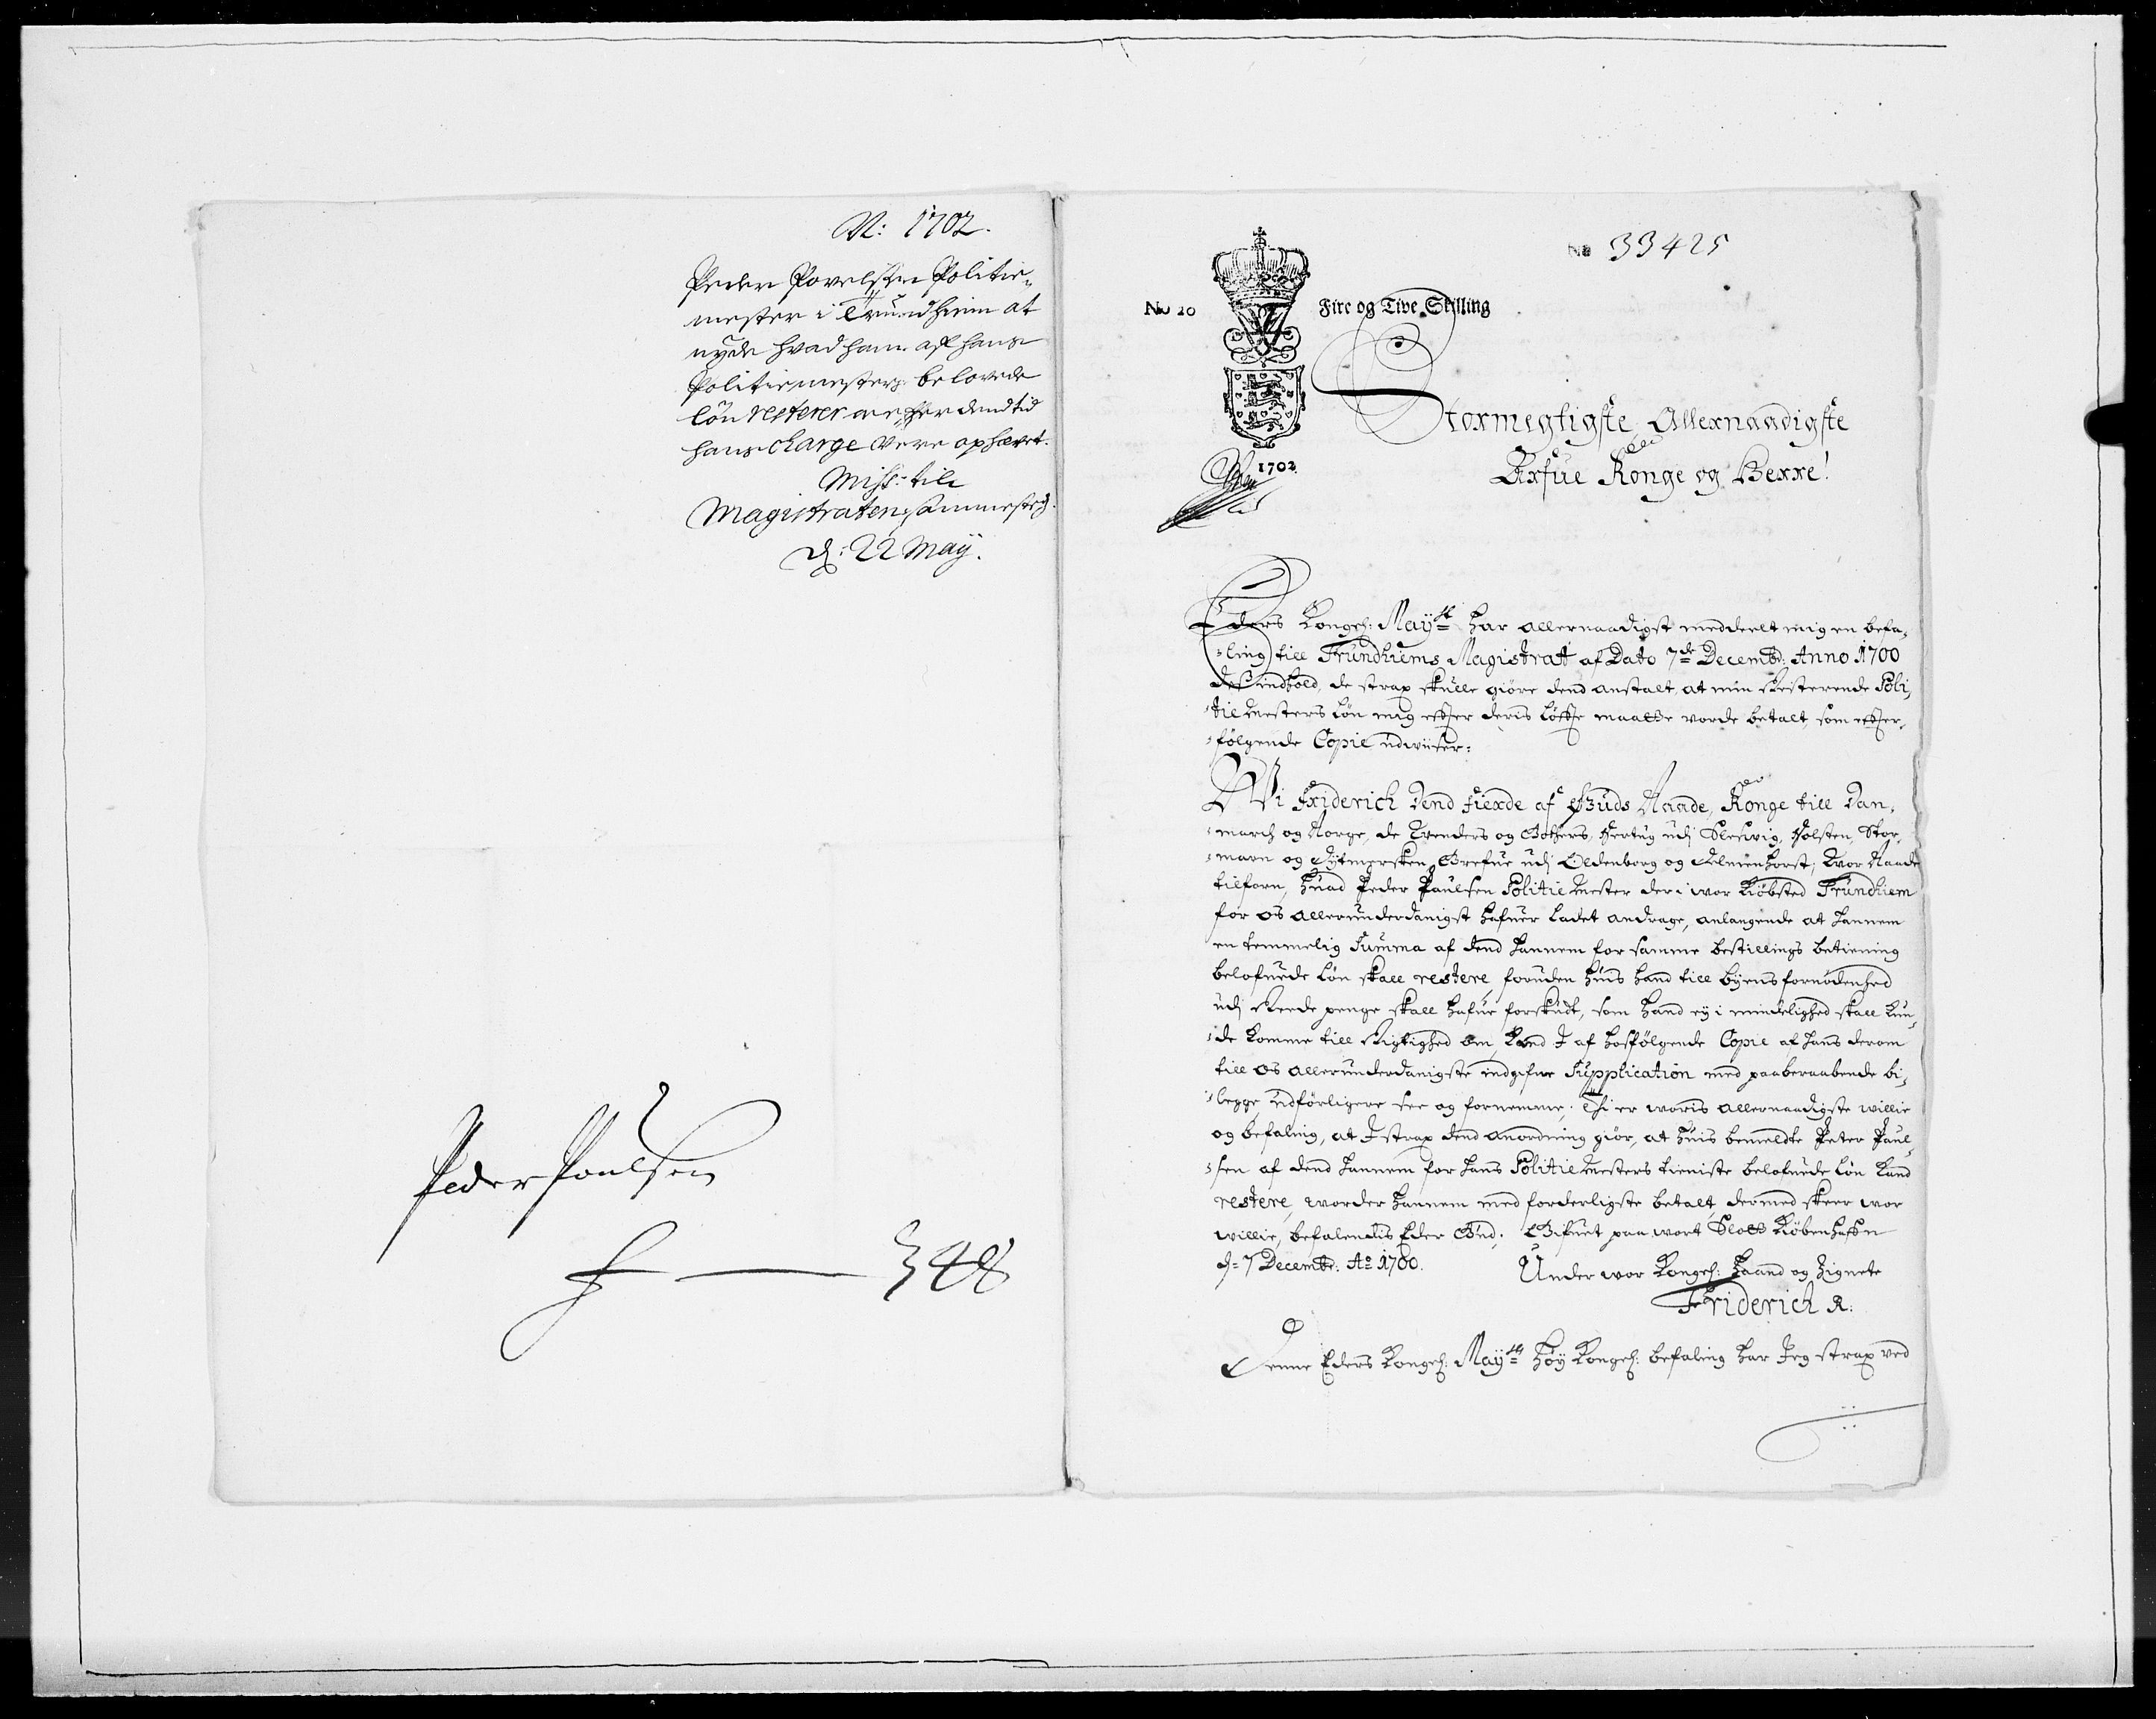 N: 1702.
Peder Povelsen Politie-
mester i Trundhiem at
nyde hvad ham aff hans
Politiemesters belovede
løn resterer der dend tid
hans charge vere ophævet.
Miss: til
Magistraten sammested
d: 22 Maÿ.
Peder Poulsen
348
No 33425
No 20
Fire og Tive Skilling
1702
Stormegtigste Allernaadigste
Arfue Konge og Herre!
Eders Kongel: Maÿtt har allernaadigst meddeelt mig en befa-
ling till Trundhiems Magistrat af Dato 7de Decembr: Anno 1700
des indhold, de strax skulle giöre dend anstalt, at min Resterende Poli-
tie Mesters løn mig effter deris løffte maatte vorde betalt, som effter-
følgende Copie udwiiser:
Wi Friderich dend fierde af Guds Naade, Konge till Dan-
march og Norge, de Wenders og Gothers, Hertug udj Slesvig, Holsten, Stor-
marn og Dytmersken, Grefue udj Oldenborg og Delmenhorst; Wor Naade
tilforn, Huad Peder Paulsen Politie Mester der i wor Kiøbsted Trundhiem
for os allerunderdanigst hafuer ladet andrage, anlangende at hannem
en temmelig Summa af dend hannem for samme bestillings betiening
belofuede løn skall restere, foruden huis hand till byens fornødenhed
udj Reede penge skall hafue forskudt, som hand ey i mindelighed skall kun-
de komme till Rigtighed om, Kand I af hosfølgende Copie af hans derom
till os allerunderdanigste indgifne Supplication med paaberaabende bi-
legge, udförligere see og fornemme. Thi er woris allernaadigste willie
og befaling, at I strax dend anordning giør, at huis bemeldte Peter Paul-
sen af dend hannem for hans Politie Mesters tieniste belofuede løn kand
restere, worder hannem med forderligste betalt, dermed skeer wor
willie, befalendis Eder Gud. Gifuet paa wort Slott Kiøbenhaffn
d= 7 Decembr: Ao 1700.
Under wor Kongel: Haand og Zignete
Friderich R.
Denne Eders Kongel: Maÿtt høÿ Kongel: befaling har Jeg strax ved